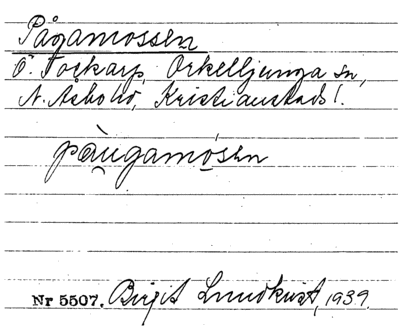 Pågamossen
Ö. Foskarp, Örkelljunga sn,
N. Åsbo hd, Kristianstads l.
pàu̯gamósen
Nr 5507. Birgit Lundkvist, 1939.